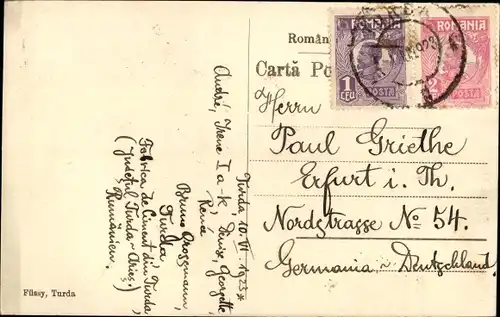 Român
Cartă Po
ROMANIA
1
LEU
POSTA
ROMANIA
2
POSTA
Herrn
Paul Griethe
Erfurt i. Th.
Nordstrasse No 54.
Germania, - Deutschland.
Turda, 10. VI. 1923*
André, Irene I a - k, Denise, Georgette,
René
Bruno Grossmann,
Turda
Fabrica de Ciment din Turda
(Judeţul Turda - Arieş.)
Rumänien.
Füssy, Turda